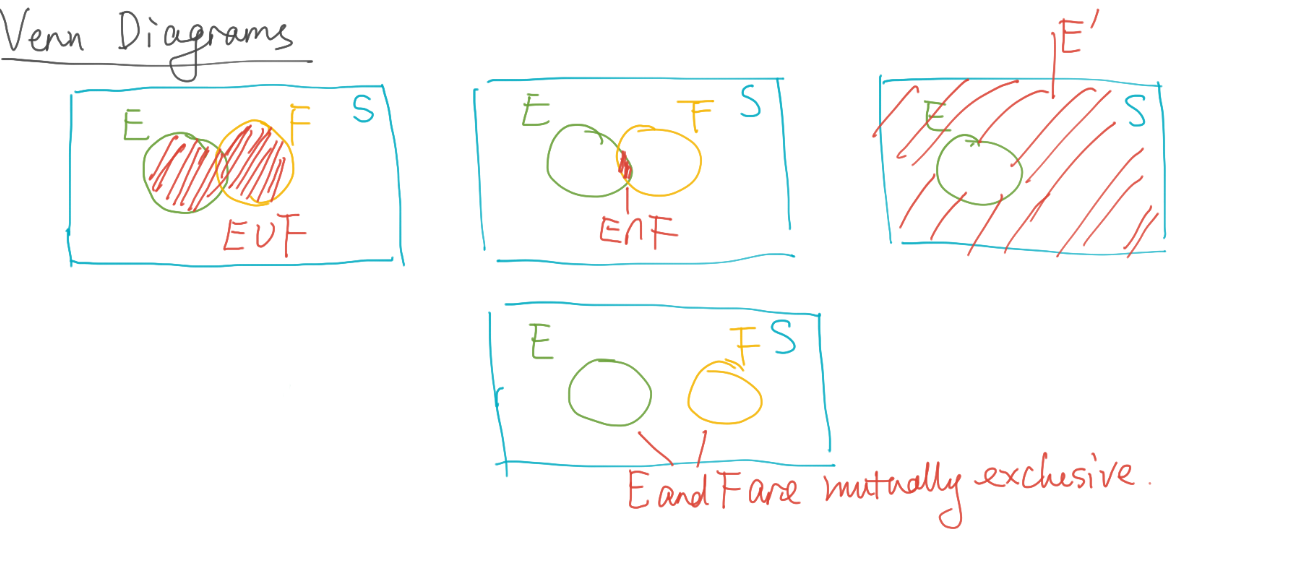 Venn Diagrams
E F S
E∪F
E F S
E∩F
E'
E S
E F S
E and F are mutually exclusive.